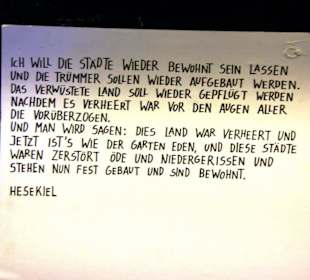 ICH WILL DIE STÄDTE WIEDER BEWOHNT SEIN LASSEN
UND DIE TRÜMMER SOLLEN WIEDER AUFGEBAUT WERDEN.
DAS VERWÜSTETE LAND SOLL WIEDER GEPFLÜGT WERDEN
NACHDEM ES VERHEERT WAR VOR DEN AUGEN ALLER
DIE VORÜBERZOGEN.
UND MAN WIRD SAGEN: DIES LAND WAR VERHEERT UND
JETZT IST'S WIE DER GARTEN EDEN, UND DIESE STÄDTE
WAREN ZERSTÖRT ÖDE UND NIEDERGERISSEN UND
STEHEN NUN FEST GEBAUT UND SIND BEWOHNT.
HESEKIEL